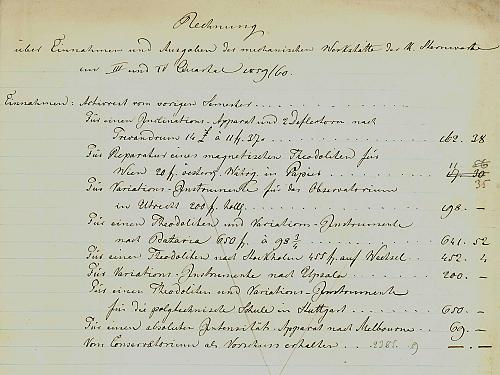 Rechnung
über Einnahmen und Ausgaben der mechanischen Werkstätte der k. Sternwarte
im III und IV Quartal 1859/60.
Einnahmen: Activrest vom vorigen Semester
Für einen Inclinations-Apparat und 2 Deflectoren nach
Trevandrum 14 £ à 11 f. 37 162. 38
Für Reparatur eines magnetischen Theodoliten für 11 56
Wien 20 f. österr. Währg. in Papier 17 30
35
Für Variations-Instrumente für das Observatorium
in Utrecht 200 f. holl. 198. –
Für einen Theodoliten und Variations-Instrumente
nach Batavia 650 f. à 98 3/4 641. 52
Für einen Theodoliten nach Stockholm 455 f. auf Wechsel 452. 4
Für Variations-Instrumente nach Upsala 200. –
Für einen Theodoliten und Variations-Instrumente
für die polytechnische Schule in Stuttgart 650. –
Für einen absoluten Intensitäts-Apparat nach Melbourne 69. –
Vom Conservatorium als Vorschuss erhalten 2385. 9 –. –